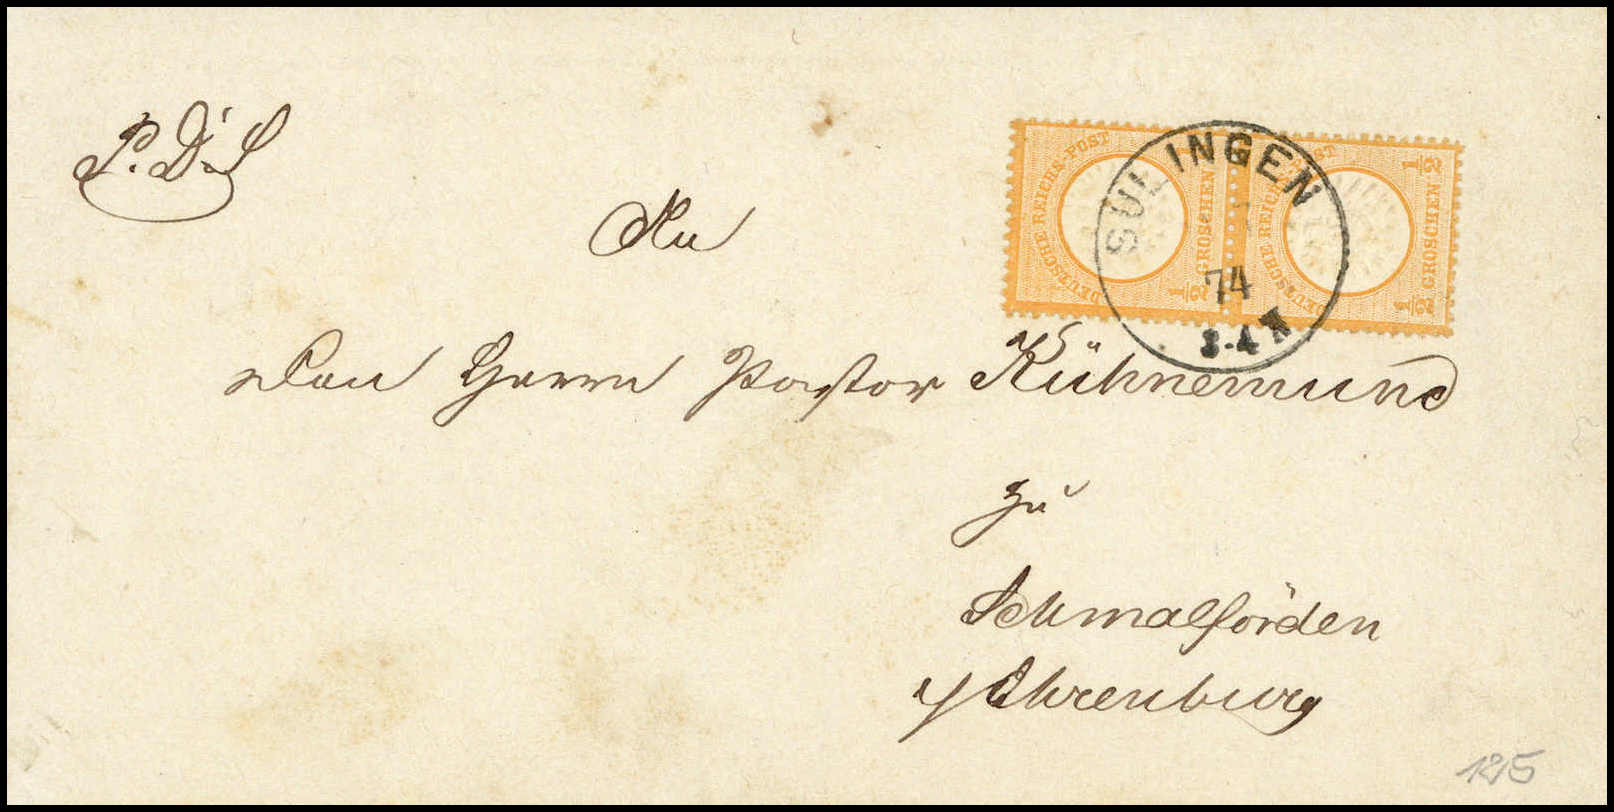 P. D. S.
An
Den Herrn Pastor Kühnemund
zu
Schmalförden
Ehrenburg
DEUTSCHE REICHS-POST ½ GROSCHEN
DEUTSCHE REICHS-POST ½ GROSCHEN ½
SULINGEN
74
3-4 N
125